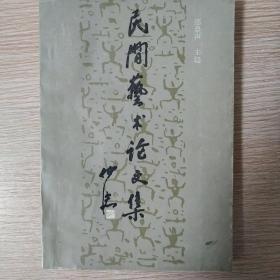 民間藝术论文集
主编